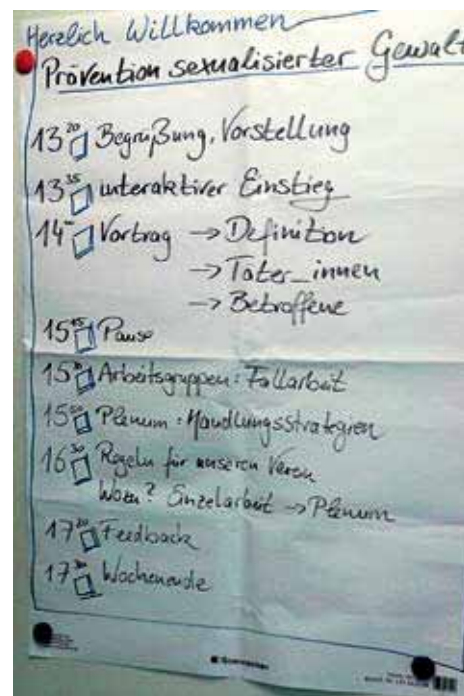 Herzlich Willkommen
Prävention sexualisierter Gewalt
13²⁰ Begrüßung, Vorstellung
13³⁵ interaktiver Einstieg
14 Vortrag → Definition
→ Täter_innen
→ Betroffene
15¹⁵ Pause
15³⁰ Arbeitsgruppen: Fallarbeit
15⁵⁰ Plenum: Handlungsstrategien
16³⁰ Regeln für unseren Verein
Wozu? Einzelarbeit → Plenum
17²⁰ Feedback
17³⁰ Wochenende